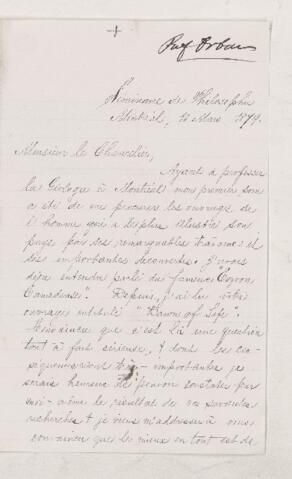 Prof Orban
Séminaire de Philosophie
Montréal, 12 Mars 1879.
Monsieur le Chevalier,
Ayant à professer
la Géologie à Montréal mon premier soin
a été de me procurer les ouvrages de
l'homme qui a le plus illustré son
pays par ses remarquables travaux et
ses importantes découvertes. J'avais
déjà entendu parler du fameux "Eozoon
Canadense". Depuis, j'ai lu votre
ouvrage intitulé "Dawn of Life".
Convaincu que c'est là une question
tout à fait sérieuse, & dont les con-
séquences sont très-importantes je
serais heureux de pouvoir constater par
moi-même le résultat de vos savantes
recherches & je viens m'adresser à vous
convaincu que le mieux en tout est de